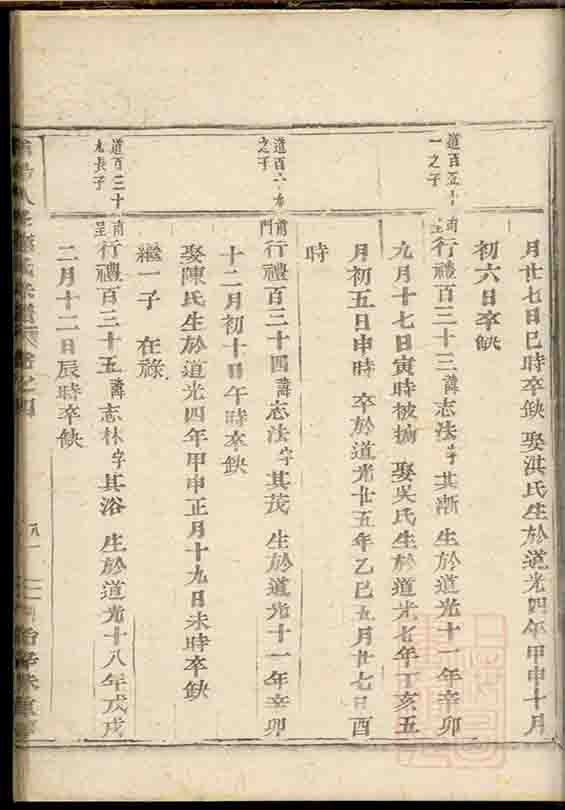 月廿七日巳時卒缺 娶洪氏生於道光四年甲申十月
初六日卒缺
道百五十
一之子
行禮百三十三諱志法字其漸 生於道光十一年辛卯
九月十七日寅時被擄 娶吳氏生於道光七年丁亥五
月初五日申時 卒於道光廿五年乙巳五月廿七日酉
時
道百六
之子
行禮百三十四諱志法字其茂 生於道光十一年辛卯
十二月初十日午時卒缺
娶陳氏生於道光四年甲申正月十九日未時卒缺
繼一子 在祿
道百三十
長子
行禮百三十五諱志林字其浴 生於道光十八年戊戌
二月十二日辰時卒缺